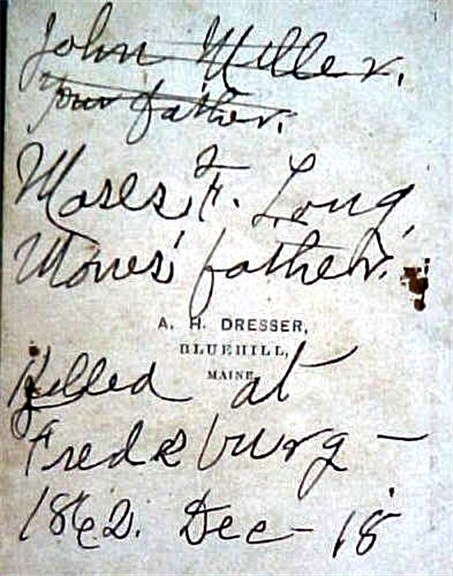 John Miller.
Your father.
Moses F. Long,
Mones' father.
A. H. DRESSER,
BLUEHILL,
MAINE
Killed at
Fredsburg —
1862. Dec – 18